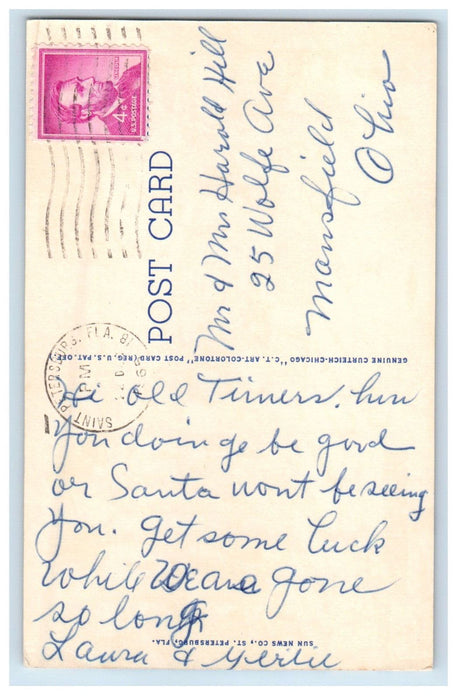 LINCOLN
4¢
U.S. POSTAGE
SAINT PETERSBURG, FLA.
PM
POST CARD
Mr & Mrs Harold Hill
25 Wolfe Ave
Mansfield
Ohio
GENUINE CURTEICH-CHICAGO "C.T. ART-COLORTONE" POST CARD (REG. U.S. PAT. OFF.)
Hi Old Timers. hows
you doinge be good
or Santa wont be seeing
you. Get some luck
while We are gone
so long
Laura & Gertie
SUN NEWS CO., ST. PETERSBURG, FLA.